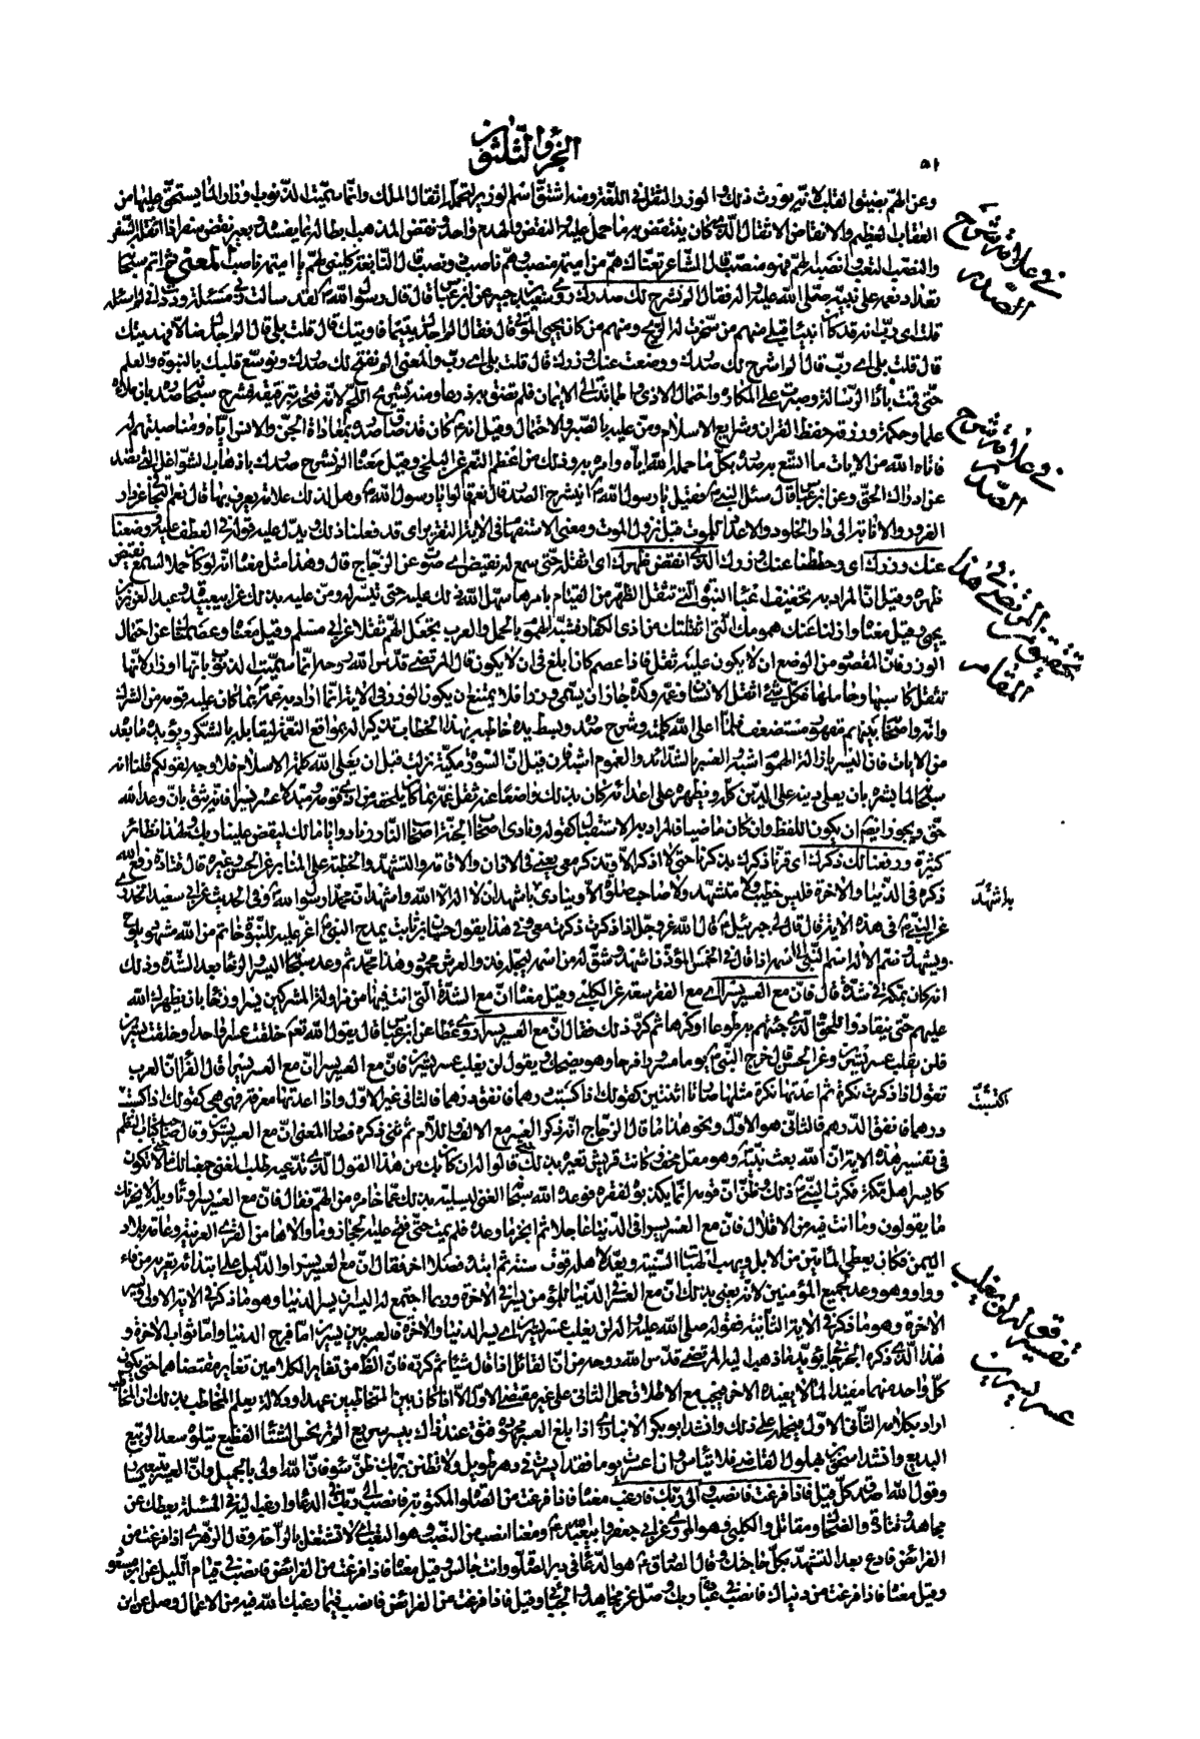 الجزؤ الثلثون
٥١
وعن الهم بضيق القلب لانه يورث ذلك والوزر الثقل في اللغة ومنه اشتق اسم الوزير لتحمله اثقال الملك وانما سميت الذنوب اوزارا لما يستحق عليها من
العقاب العظيم والانقاض الاثقال الذي كان ينتقض به ما حمل عليه والنقض والهدم واحد ونقض المذهب ابطاله بما يفسده وبعير نقض سفر اذا اثقله السفر
والنصب التعب وانصبه الهم فهو منصب قال الشاعر تعناك هم من اميمة منصب وهم ناصب ذو نصب قال النابغة كليني لهم يا اميمة ناصب المعنى ثم اتم سبحانه
تعداد نعمه على نبيه صلى الله عليه واله فقال الم نشرح لك صدرك روى سعيد بن جبير عن ابن عباس قال قال رسول الله لقد سالت ربي مسئلة وددت اني لم اسئله
قلت اي رب انه قد كان انبياء قبلي منهم من سخرت له الريح ومنهم من كان يحيي الموتى قال فقال الم اجدك يتيما فاويتك قال قلت بلى قال الم اجدك ضالا فهديتك
قال قلت بلى اي رب قال الم اشرح لك صدرك ووضعت عنك وزرك قال قلت بلى اي رب والمعنى الم نفتح لك صدرك ونوسع قلبك بالنبوة والعلم
حتى قمت باداء الرسالة وصبرت على المكاره واحتمال الاذى واطماننت الى الايمان فلم تضق به ذرعا ومنه تشريح اللحم لانه فتحه بترقيقه فشرح سبحانه صدره بان ملأه
علما وحكمة ورزقه حفظ القران وشرايع الاسلام ومن عليه بالصبر والاحتمال وقيل انه كان قد ضاق صدره بمعاداة الجن والانس اياه ومناصبتهم له
فاتاه الله من الايات ما اتسع به صدره بكل ما حمله الله اياه وامره به وذلك من اعظم النعم عن البلخي وقيل معناه الم نشرح صدرك باذهاب الشواغل التي تصد
عن ادراك الحق وعن ابن عباس قال سئل النبي فقيل يا رسول الله اينشرح الصدر قال نعم قالوا يا رسول الله وهل لذلك علامة يعرف بها قال نعم التجافي عن دار
الغرور والانابة الى دار الخلود والاعداد للموت قبل نزول الموت ومعنى الاستفهام في الاية التقرير اي قد فعلنا ذلك ويدل عليه قوله في العطف عليه ووضعنا
عنك وزرك اي وحططنا عنك وزرك الذي انقض ظهرك اي اثقله حتى سمع له نقيض اي صوت عن الزجاج قال وهذا مثل معناه انه لو كان حملا لسمع نقيض
ظهره وقيل ان المراد به تخفيف اعباء النبوة التي تثقل الظهر من القيام بامرها سهل الله ذلك عليه حتى تيسر له ومن عليه بذلك عن ابي عبيدة وعبد العزيز بن
يحيى وقيل معناه وازلنا عنك همومك التي اثقلتك من اذى الكفار فشبه الهموم بالحمل والعرب تجعل الهم ثقلا عن ابي مسلم وقيل معناه وعصمناك عن احتمال
الوزر فان المقصود من الوضع ان لا يكون عليه ثقل فاذا عصم كان ابلغ في ان لا يكون قال المرتضى قدس الله روحه انما سميت الذنوب بانها اوزار لانها
تثقل كاسبها وحاملها فكل شيء اثقل الانسان وغمه وكده جاز ان يسمى وزرا فلا يمتنع ان يكون الوزر في الاية انما اراد به غمه بما كان عليه قومه من الشرك
وانه واصحابه بينهم مقهور مستضعف فلما اعلى الله كلمته وشرح صدره وبسط يده خاطبه بهذا الخطاب تذكيرا له بمواقع النعمة ليقابله بالشكر ويؤيده ما بعده
من الايات فان اليسر بازالة الهموم اشبه والعسر بالشدائد والغموم اشبه فان قيل ان السورة مكية نزلت قبل ان يعلي الله كلمة الاسلام فلا وجه لقولكم قلنا انه
سبحانه لما بشره بان يعلي دينه على الدين كله ويظهره على اعدائه كان بذلك واضعا عنه ثقل غمه بما كان يلحقه من اذى قومه ومبدلا عسره يسرا فانه يثق بان وعد الله
حق ويجوز ايضا ان يكون اللفظ وان كان ماضيا فالمراد به الاستقبال كقوله ونادى اصحاب الجنة اصحاب النار ونادوا يا مالك ليقض علينا ربك ولهذا نظائر
كثيرة ورفعنا لك ذكرك اي قرنا ذكرك بذكرنا حتى لا اذكر الا وتذكر معي يعني في الاذان والاقامة والتشهد والخطبة على المنابر عن الحسن وغيره قال قتادة رفع الله
ذكره في الدنيا والاخرة فليس خطيب ولا متشهد ولا صاحب صلوة الا وينادي باشهد ان لا اله الا الله واشهد ان محمدا رسول الله وفي الحديث عن ابي سعيد الخدري
عن النبي في هذه الاية قال قال لي جبرئيل قال الله عز وجل اذا ذكرت ذكرت معي وفي هذا يقول حسان بن ثابت يمدح النبي اغر عليه للنبوة خاتم من الله مشهود يلوح
ويشهد وضم الاله اسم النبي الى اسمه اذا قال في الخمس المؤذن اشهد وشق له من اسمه ليجله فذو العرش محمود وهذا محمد ثم وعده سبحانه اليسر والرخاء بعد الشدة وذلك
انه كان بمكة في شدة فقال فان مع العسر يسرا اي مع الفقر سعة عن الكلبي وقيل معناه ان مع الشدة التي انت فيها من مزاولة المشركين يسرا ورخاء بان يظهرك الله
عليهم حتى ينقادوا للحق الذي جئتهم به طوعا او كرها ثم كرر ذلك فقال ان مع العسر يسرا روى عطا عن ابن عباس قال يقول الله تعالى خلقت عسرا واحدا وخلقت يسرين
فلن يغلب عسر يسرين وعن الحسن قال خرج النبي يوما مسرورا فرحا وهو يضحك ويقول لن يغلب عسر يسرين فان مع العسر يسرا ان مع العسر يسرا قال الفراء ان العرب
تقول اذا ذكرت نكرة ثم اعدتها نكرة مثلها صارتا اثنتين كقولك اذا كسبت درهما فانفق درهما فالثاني غير الاول واذا اعدتها معرفة فهي هي كقولك اذا كسبت
درهما فانفق الدرهم فالثاني هو الاول ونحو هذا ما قال الزجاج انه ذكر العسر مع الالف واللام ثم ثنى ذكره فصار المعنى ان مع العسر يسرين وقال صاحب كتاب النظم
في تفسير هذه الاية ان الله بعث نبيه وهو مقل مخف وكانت قريش تعيره بذلك حتى قالوا له ان كان بك من هذا القول الذي تدعيه طلب الغنى جمعنا لك مالا حتى تكون
كايسر اهل مكة فكره النبي ذلك وظن ان قومه انما يكذبوه لفقره فوعده الله سبحانه الغنى ليسليه بذلك عما خامره من الهم فقال فان مع العسر يسرا وتاويله لا يحزنك
ما يقولون وما انت فيه من الاقلال فان مع العسر يسرا في الدنيا عاجلا ثم انجز ما وعده فلم يمت حتى فتح عليه الحجاز وما والاها من القرى العربية وعامة بلاد
اليمن فكان يعطي المأتين من الابل ويهب الهبات السنية ويعد لاهله قوت سنته ثم ابتدء فصلا اخر فقال ان مع العسر يسرا والدليل على ابتدائه تعريه من فاء
وواو وهو وعد لجميع المؤمنين لانه يعني بذلك ان مع العسر في الدنيا للمؤمن يسرا في الاخرة وربما اجتمع له اليسران يسر الدنيا وهو ما ذكر في الاية الاولى ويسر
الاخرة وهو ما ذكر في الاية الثانية فقوله صلى الله عليه واله لن يغلب عسر يسرين اي يسر الدنيا والاخرة فالعسر بين يسرين اما فرج الدنيا واما ثواب الاخرة و
هذا الذي ذكره الجرجاني يؤيد ما ذهب اليه المرتضى قدس الله روحه من ان القائل اذا قال شيئا ثم كرره فان الظاهر من تغاير الكلامين تغاير مقتضاهما حتى يكون
كل واحد منهما مفيدا لما لا يفيده الاخر فيجب مع الاطلاق حمل الثاني على غير مقتضى الاول الا اذا كان بين المتخاطبين عهد او دلالة يعلم المخاطب بذلك ان المخاطب
اراد بكلامه الثاني الاول فيحمل على ذلك وانشد ابو بكر الانباري اذا بلغ العسر مجهوده فثق عند ذاك بيسر سريع الم تر نحس الشتاء الفظيع يتلوه سعد الربيع
البديع وانشد اسحق بن بهلول القاضي فلا تيأس وان اعسرت يوما فقد ايسرت في دهر طويل ولا تظنن بربك ظن سوء فان الله اولى بالجميل وان العسر يتبعه يسار
وقول الله اصدق كل قيل فاذا فرغت فانصب والى ربك فارغب معناه فاذا فرغت من الصلوة المكتوبة فانصب الى ربك في الدعاء وارغب اليه في المسئلة يعطك عن
مجاهد وقتادة والضحاك ومقاتل والكلبي وهو المروي عن ابي جعفر وابي عبد الله ومعنى انصب من النصب وهو التعب اي لا تشتغل بالراحة وقال الزهري اذا فرغت من
الفرائض فادع بعد التشهد بكل حاجتك وقال الصادق هو الدعاء في دبر الصلوة وانت جالس وقيل معناه فاذا فرغت من الفرائض فانصب في قيام الليل عن ابن مسعود
وقيل معناه فاذا فرغت من دنياك فانصب في عبادة ربك وصل عن مجاهد والجبائي وقيل فاذا فرغت من الفرائض فانصب فيما رغبك الله فيه من الاعمال وصل عن ابن
في علامة شرح
الصدر
في علامة شرح
الصدر
تحقيق من المرتضى في هذا
المقام
باشهد
اكتسبت
تفسير قوله لن يغلب
عسر يسرين